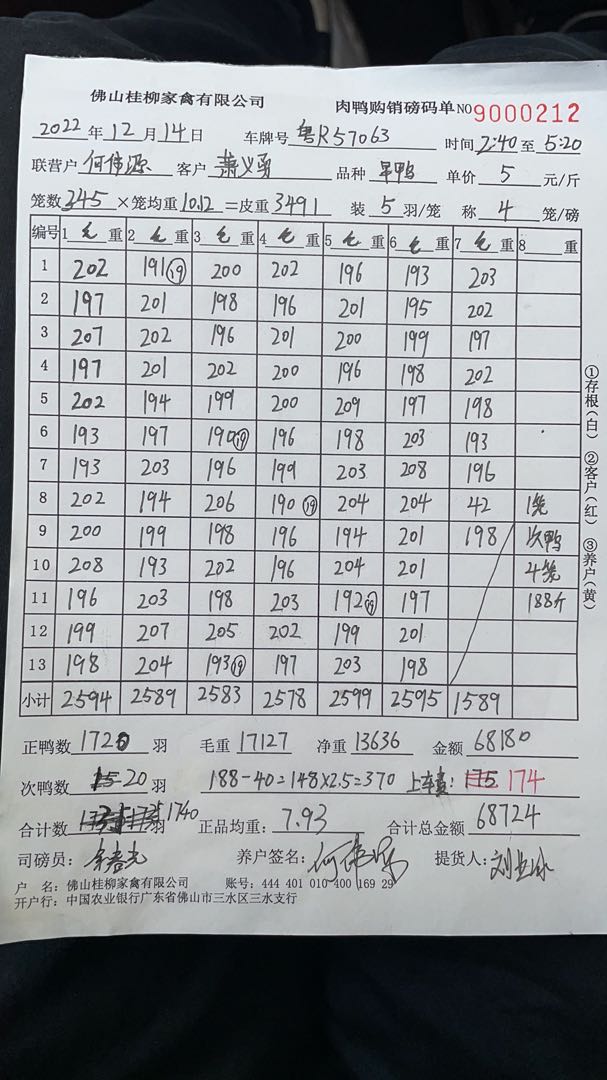 佛山桂柳家禽有限公司 肉鸭购销磅码单 NO 9000212
2022 年 12 月 14 日 车牌号 粤R57063 时间 2:40 至 5:20
联营户 何伟源 客户 萧义勇 品种 旱鸭 单价 5 元/斤
笼数 345 ×笼均重 10.12 =皮重 3491 装 5 羽/笼 称 4 笼/磅
编号 1 毛 重 2 毛 重 3 毛 重 4 毛 重 5 毛 重 6 毛 重 7 毛 重 8 重
1 202 191 ⑲ 200 202 196 193 203
2 197 201 198 196 201 195 202
3 207 202 196 201 200 199 197
4 197 201 202 200 196 198 202
5 202 194 199 200 209 197 198
6 193 197 190 ⑲ 196 198 203 193
7 193 203 196 199 203 208 196
8 202 194 206 190 ⑲ 204 204 42 1笼
9 200 199 198 196 194 201 198 次鸭
10 208 193 202 196 204 201 4笼
11 196 203 198 203 192 ⑲ 197 188斤
12 199 207 205 202 199 201
13 198 204 193 ⑲ 197 203 198
小计 2594 2589 2583 2578 2599 2595 1589
正鸭数 1720 羽 毛重 17127 净重 13636 金额 68180
次鸭数 20 羽 188-40=148×2.5=370 上车费: 175 174
合计数 1740 羽 正品均重: 7.93 合计总金额 68724
司磅员: 养户签名: 何伟源 提货人:
户 名: 佛山桂柳家禽有限公司 账号: 444 401 010 400 169 29
开户行: 中国农业银行广东省佛山市三水区三水支行
①存根(白) ②客户(红) ③养户(黄)